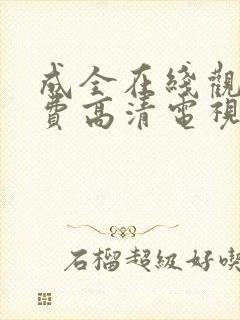 成全在綫觀
費高清電視
石榴超級好喫